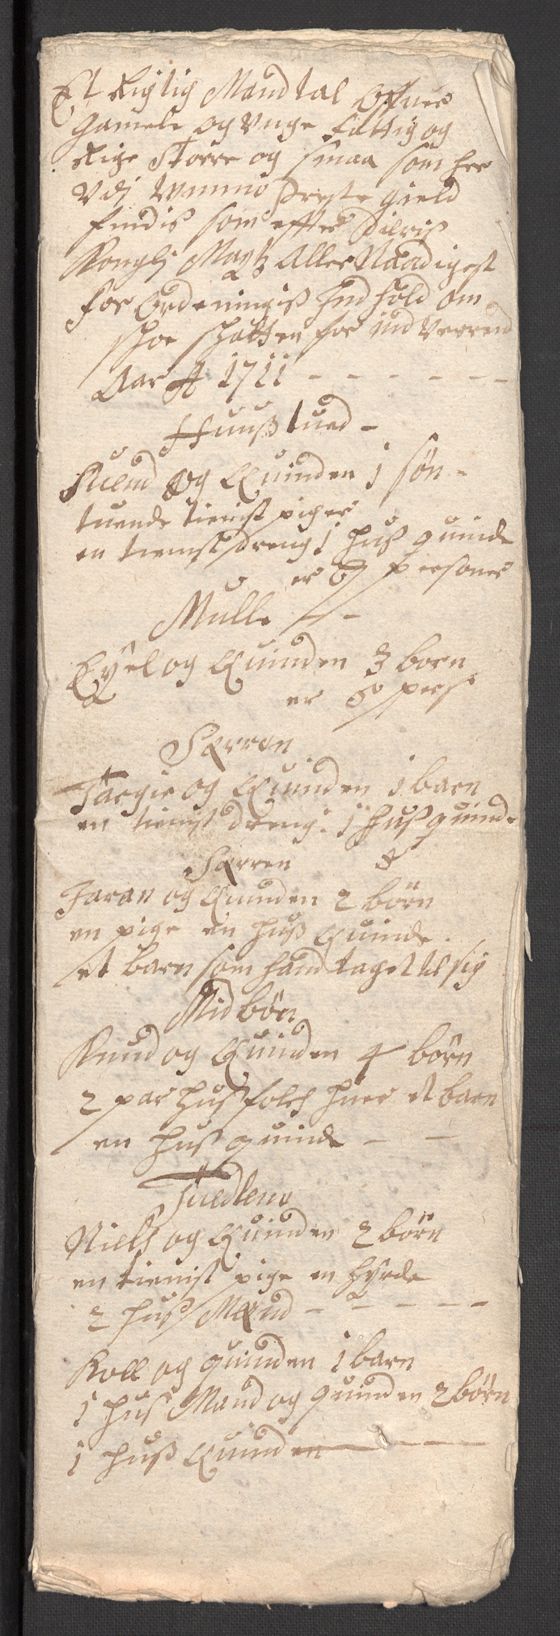 Et Rigtig Mandtal Offuer
Gamele og Vnge fattig og
Rige Storre og smaa som her
Vdj Preste gield
findis som effter
Kongl: Mayts Aller Naadigest
for Ordeningiss Ind hold om
skoe skatten for ind Verrend
Aar A 1711 - - - - - -
Huuss tued -
Suend og Quinden 1 søn -
tuende tienist piger
en tienist dreng 1 huss quinde
er 6 personer
Mulle - -
Eysel og Quinden 3 born
er 5 pers:
Sørren
Targie og Quinden 1 barn
en tienist dreng: 1 huss quinde
Sørren
Jaran og Quinden 2 børn
en pige en huss Quinde.
et barn som hand taget til sig
Midbøen
Knud og Quinden 4 børn
2 par huss folch huer et barn
en huss quinde - -
Tuedteno
Niels og Quinden 2 børn
en tienist pige en hyrde
2 huss Mænd - - - - -
Koll og quinden 1 barn
1 hus Mand og quinden 2 børn
1 huss Quinden - - -